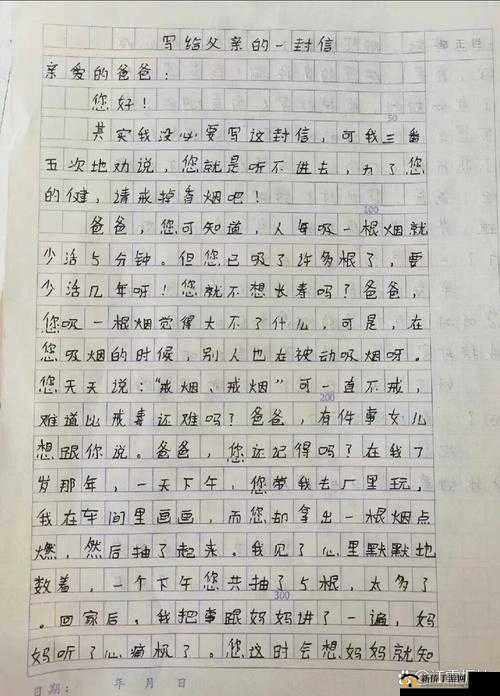 写给父亲的一封信
亲爱的爸爸:
您好!
50
其实我没必要写这封信,可我三番
五次地劝说,您就是听不进去,为了您
的健,请戒掉香烟吧!
100
爸爸,您可知道,人年吸一根烟就
少活5分钟。但您已吸了许多根了,要
少活几年呀!您就不想长寿吗?爸爸,
您吸一根烟觉得大不了什么,可是,在
您吸烟的时候,别人也在被动吸烟呀。
您天天说:“戒烟,戒烟”可一直不戒,
200
难道比戒毒还难吗?爸爸,有件事女儿
想跟你说。爸爸,您还记得吗?在我7
岁那年,一天下午,您带我去厂里玩,
我在车间里画画,而您却拿出一根烟点
燃,然后抽了起来。我见了心里默默地
数着,一个下午您共抽了5根,太多了
300
。回家后,我把事跟妈妈讲了一遍,妈
妈听了心痛极了。您这时会想妈妈就知
日期: 年 月 日
新侨手游网